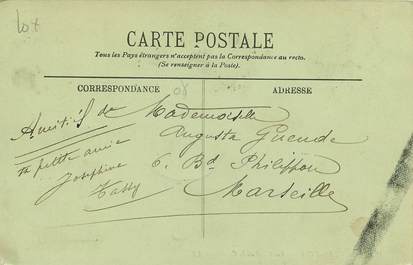 lot
CARTE POSTALE
Tous les Pays étrangers n'acceptent pas la Correspondance au recto.
(Se renseigner à la Poste).
CORRESPONDANCE
ADRESSE
Amitiés de
ta petite amie
Joséphine
Mademoiselle
Augusta
6. Bd Philippon
Marseille